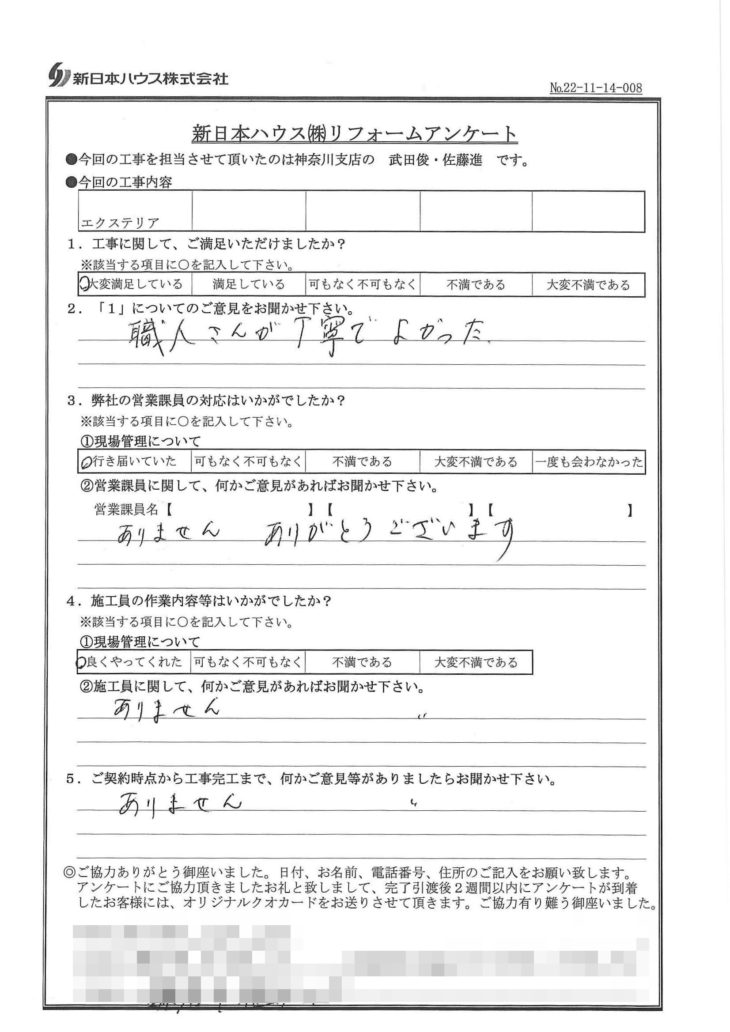 新日本ハウス株式会社
№22-11-14-008
新日本ハウス㈱リフォームアンケート
●今回の工事を担当させて頂いたのは神奈川支店の 武田俊・佐藤進 です。
●今回の工事内容
エクステリア
1．工事に関して、ご満足いただけましたか？
※該当する項目に○を記入して下さい。
大変満足している 満足している 可もなく不可もなく 不満である 大変不満である
2．「1」についてのご意見をお聞かせ下さい。
職人さんが丁寧でよかった.
3．弊社の営業課員の対応はいかがでしたか？
※該当する項目に○を記入して下さい。
①現場管理について
行き届いていた 可もなく不可もなく 不満である 大変不満である 一度も会わなかった
②営業課員に関して、何かご意見があればお聞かせ下さい。
営業課員名【 】【 】【 】
ありません ありがとうございます
4．施工員の作業内容等はいかがでしたか？
※該当する項目に○を記入して下さい。
①現場管理について
良くやってくれた 可もなく不可もなく 不満である 大変不満である
②施工員に関して、何かご意見があればお聞かせ下さい。
ありません 〃
5．ご契約時点から工事完工まで、何かご意見等がありましたらお聞かせ下さい。
ありません 〃
◎ご協力ありがとう御座いました。日付、お名前、電話番号、住所のご記入をお願い致します。
アンケートにご協力頂きましたお礼と致しまして、完了引渡後2週間以内にアンケートが到着
したお客様には、オリジナルクオカードをお送りさせて頂きます。ご協力有り難う御座いました。